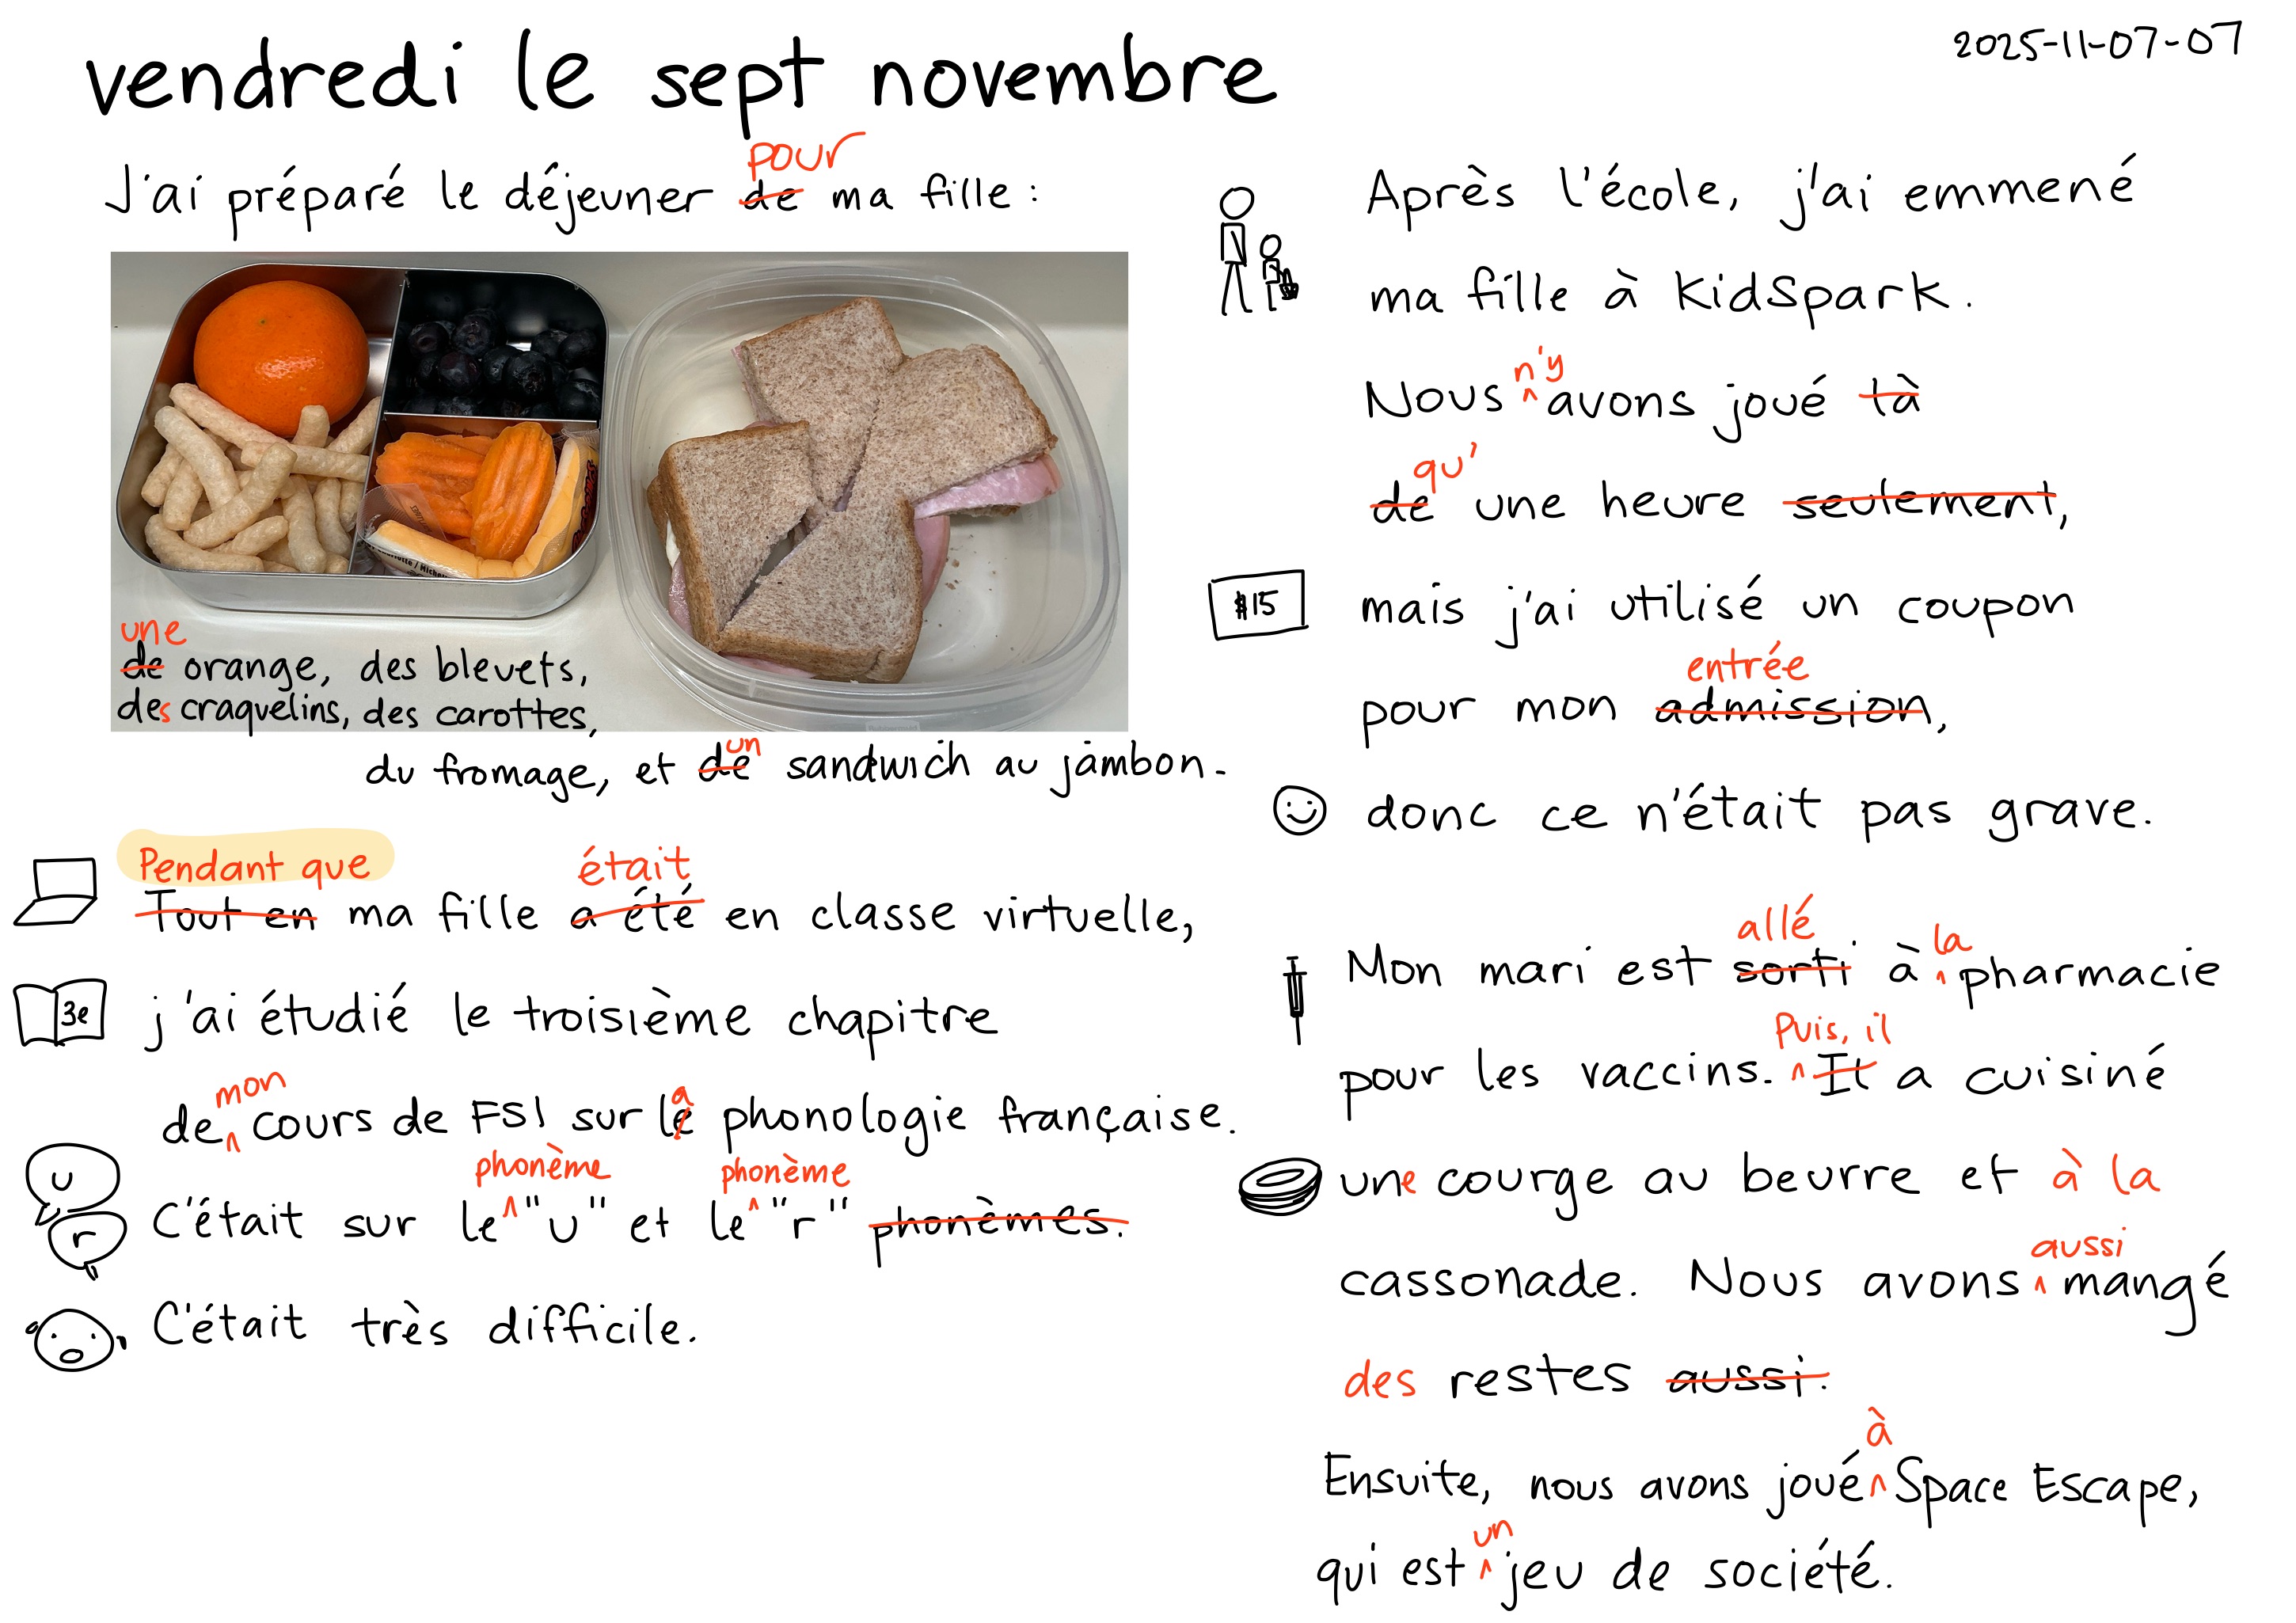 vendredi le sept novembre
2025-11-07-07
pour
J'ai préparé le déjeuner de ma fille :
une
de orange, des bleuets,
des craquelins, des carottes,
du fromage, et de un sandwich au jambon.
Pendant que était
Tout en ma fille a été en classe virtuelle,
3e
j'ai étudié le troisième chapitre
mon
de cours de FSI sur le a phonologie française.
phonème phonème
u
C'était sur le "u" et le "r" phonèmes.
r
C'était très difficile.
Après l'école, j'ai emmené
ma fille à KidSpark.
n'y
Nous avons joué là
qu'
de une heure seulement,
$15
mais j'ai utilisé un coupon
entrée
pour mon admission,
donc ce n'était pas grave.
allé la
Mon mari est sorti à pharmacie
Puis, il
pour les vaccins. Il a cuisiné
une courge au beurre et à la
aussi
cassonade. Nous avons mangé
des restes aussi.
à
Ensuite, nous avons joué Space Escape,
un
qui est jeu de société.